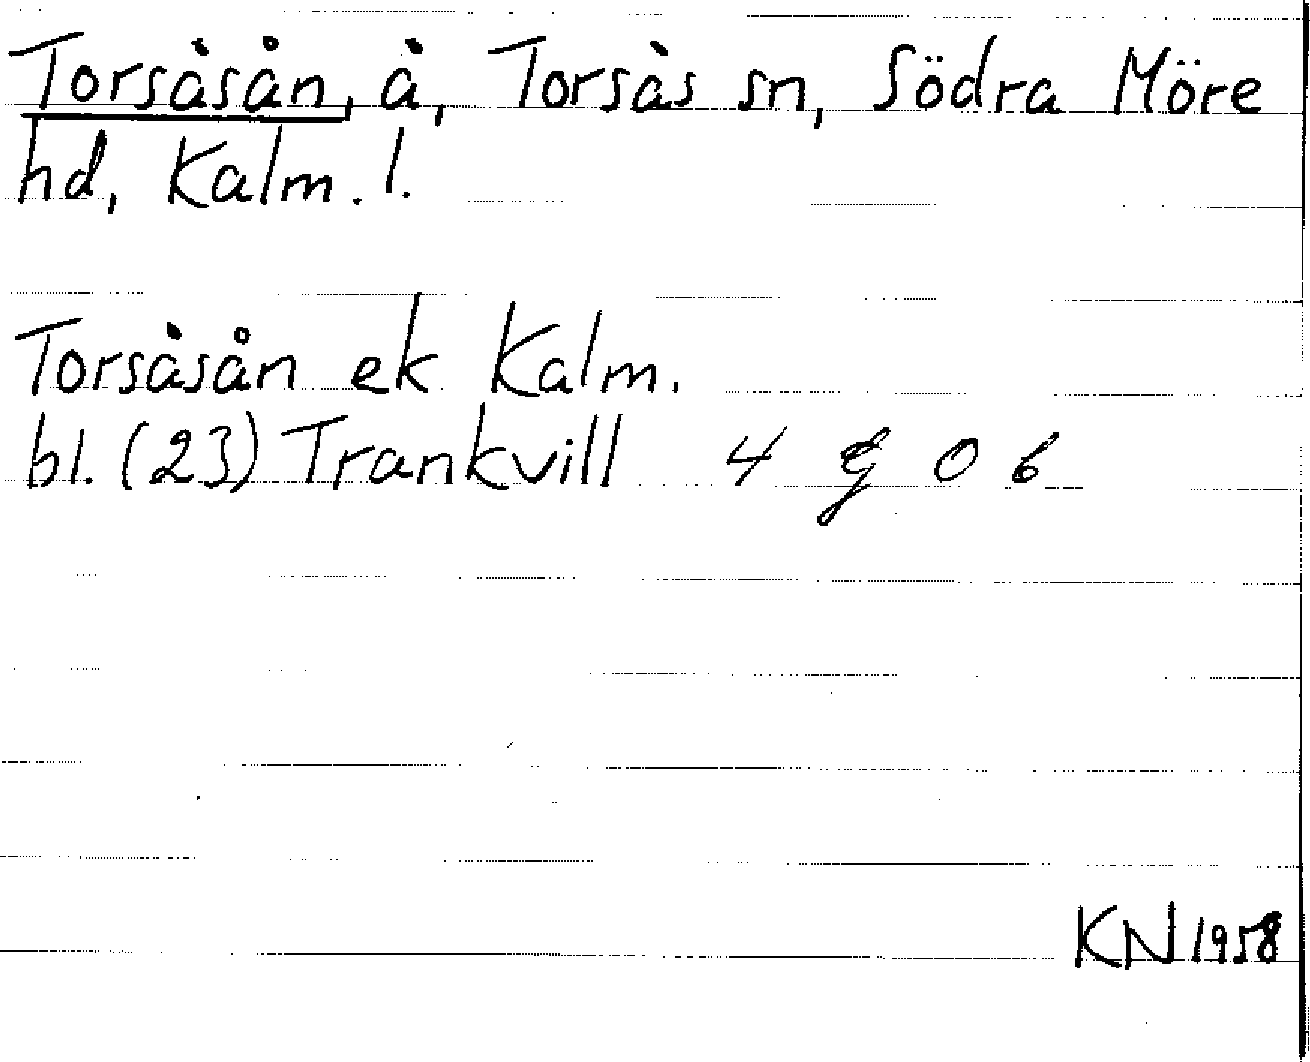 Torsåsån, å, Torsås sn, Södra Möre
hd, Kalm. l.
Torsåsån ek Kalm.
bl. (23) Trankvill 4 g 0 b
KN 1958